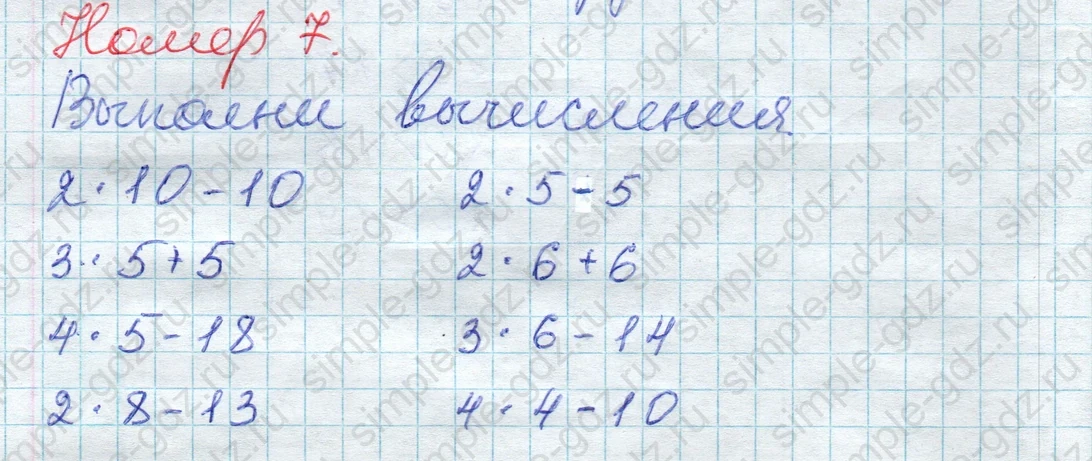 Номер 7.
Выполни вычисления
2 · 10 - 10 2 · 5 - 5
3 · 5 + 5 2 · 6 + 6
4 · 5 - 18 3 · 6 - 14
2 · 8 - 13 4 · 4 - 10
simple-gdz.ru